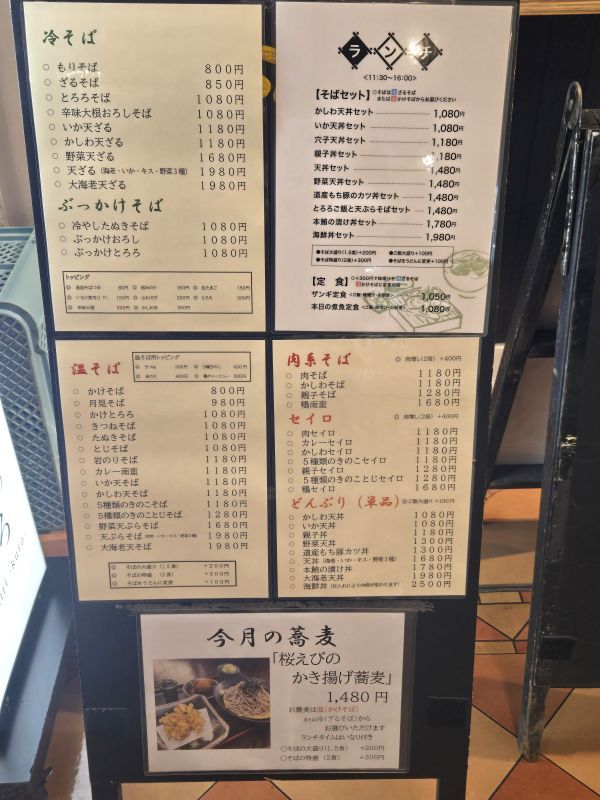 冷そば
○ もりそば 800円
○ ざるそば 850円
○ とろろそば 1080円
○ 辛味大根おろしそば 1080円
○ いか天ざる 1180円
○ かしわ天ざる 1180円
○ 野菜天ざる 1680円
○ 天ざる(海老・いか・キス・野菜3種) 1980円
○ 大海老天ざる 1980円
ぶっかけそば
○ 冷やしたぬきそば 1080円
○ ぶっかけおろし 1080円
○ ぶっかけとろろ 1080円
トッピング
ランチ
<11:30~16:00>
【そばセット】 ◎そばは冷ざるそば
または温かけそばからお選びください
かしわ天丼セット 1,080円
いか天丼セット 1,080円
穴子天丼セット 1,180円
親子丼セット 1,180円
天丼セット 1,480円
野菜天丼セット 1,480円
道産もち豚のカツ丼セット 1,480円
とろろご飯と天ぷらそばセット 1,480円
本鮪の漬け丼セット 1,780円
海鮮丼セット 1,980円
●そば大盛り(1.5食)+200円 ●ご飯大盛り+100円
●そば特盛り(2食)+300円 ●そばをうどんに変更+100円
【定食】
ザンギ定食 1,050円
本日の煮魚定食 1,080円
温そば
温そば用トッピング
○ かけそば 800円
○ 月見そば 980円
○ かけとろろ 1080円
○ きつねそば 1080円
○ たぬきそば 1080円
○ とじそば 1080円
○ 岩のりそば 1180円
○ カレー南蛮 1180円
○ いか天そば 1180円
○ かしわ天そば 1180円
○ 5種類のきのこそば 1180円
○ 5種類のきのことじそば 1280円
○ 野菜天ぷらそば 1680円
○ 天ぷらそば(海老・いか・キス・野菜3種) 1980円
○ 大海老天そば 1980円
◎ そばの大盛り(1.5食) +200円
◎ そばの特盛 (2食) +300円
◎ そばをうどんに変更 +100円
肉系そば ◎ 肉増し(2倍) +400円
○ 肉そば 1180円
○ かしわそば 1180円
○ 親子そば 1280円
○ 鴨南蛮 1680円
セイロ ◎ 肉増し(2倍) +400円
○ 肉セイロ 1180円
○ カレーセイロ 1180円
○ かしわセイロ 1180円
○ 5種類のきのこセイロ 1180円
○ 親子セイロ 1280円
○ 5種類のきのことじセイロ 1280円
○ 鴨セイロ 1680円
どんぶり(単品) ◎ご飯大盛り +100円
○ かしわ天丼 1080円
○ いか天丼 1080円
○ 親子丼 1180円
○ 野菜天丼 1300円
○ 道産もち豚カツ丼 1300円
○ 天丼(海老・いか・キス・野菜3種) 1680円
○ 本鮪の漬け丼 1780円
○ 大海老天丼 1980円
○ 海鮮丼(仕入れにより内容が変わります) 2500円
今月の蕎麦
「桜えびの
かき揚げ蕎麦」
1,480円
お蕎麦は温(かけそば)
または冷(ざるそば)から
お選びいただけます
ランチタイムはいなり付き
○そばの大盛り(1.5食) +200円
○そばの特盛 (2食) +300円